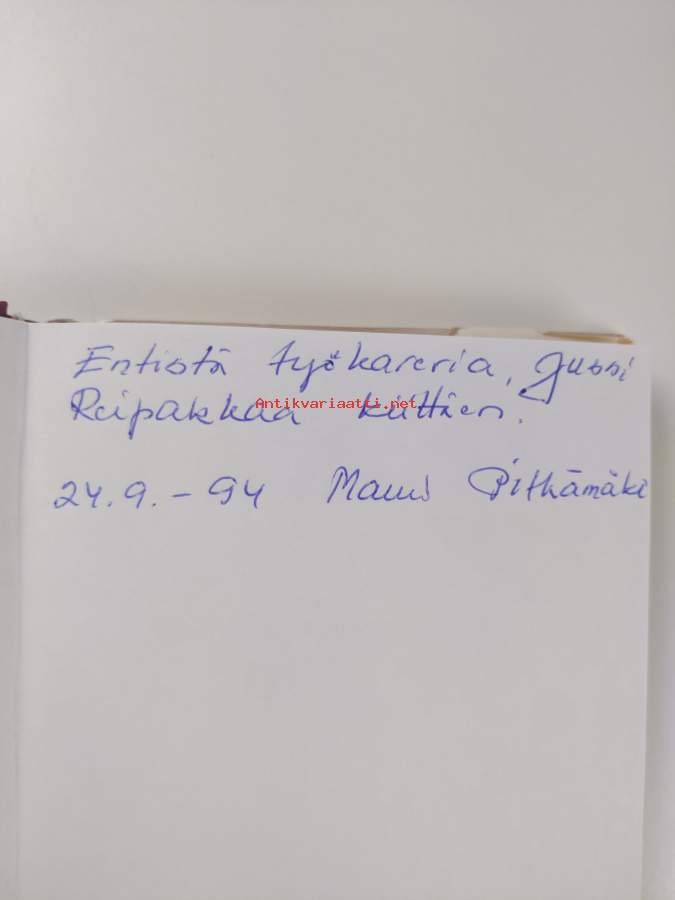 Entistä työkaveria, Jussi
Reipakkaa kiittäen.
Antikvariaatti.net
24.9.-94 Mauri Pitkämäki